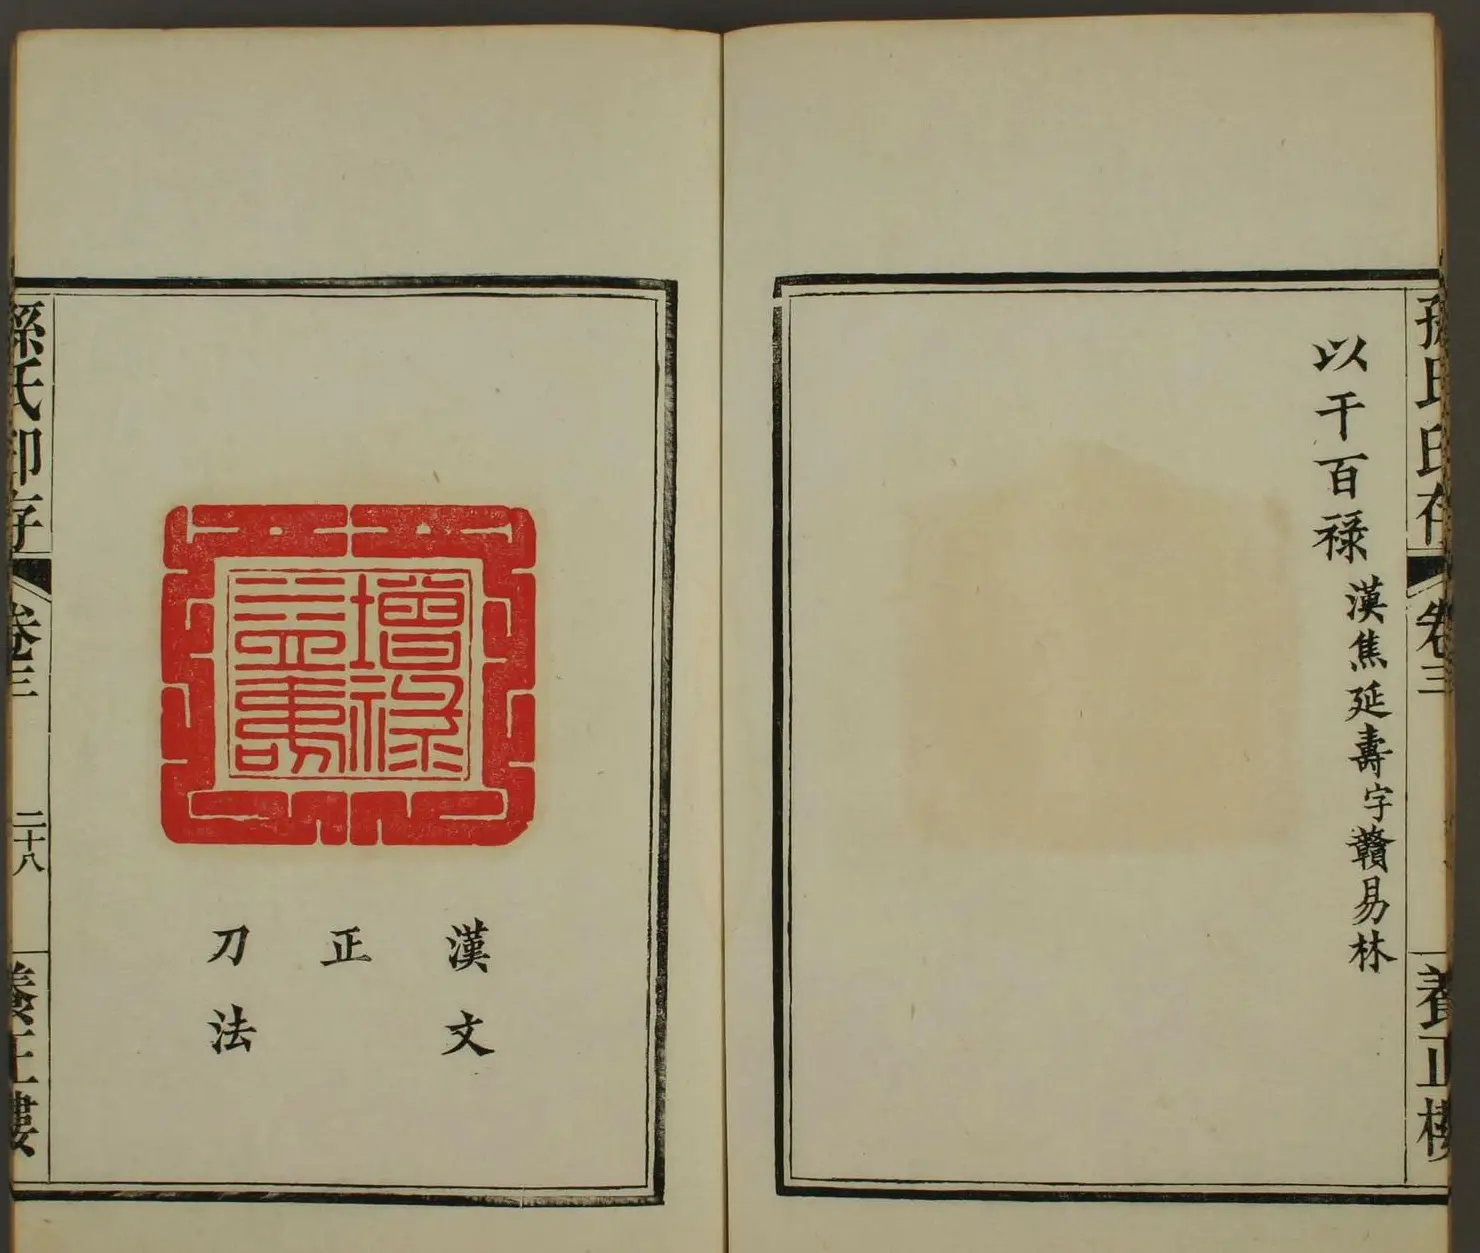 孫氏印存
卷三
養正樓
以干百祿
漢焦延壽字贛易林
增祿
益壽
漢文
正
刀法
孫氏印存
卷三
二十八
養正樓